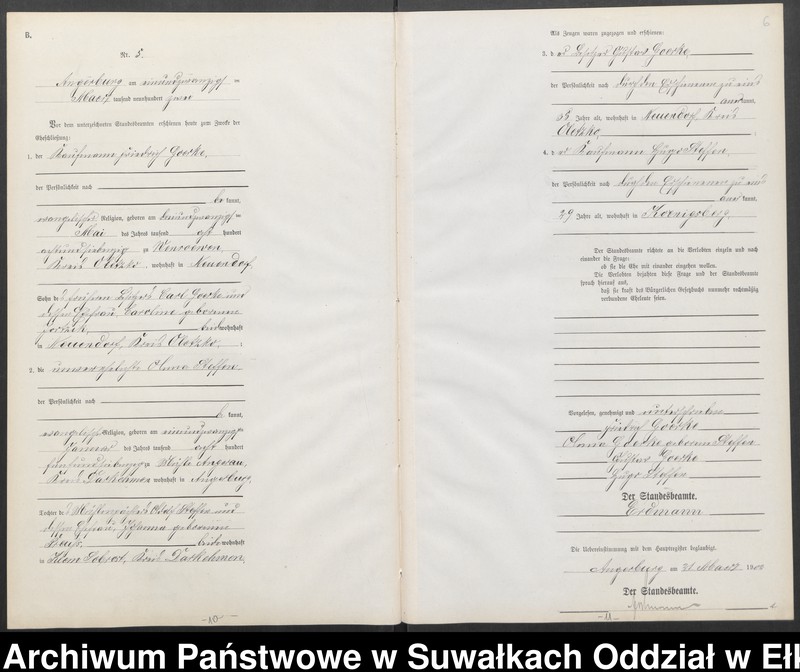 B.
Nr. 5.
Angerburg am einundzwanzigsten
Maerz tausend neunhundert
Vor dem unterzeichneten Standesbeamten erschienen heute zum Zwecke der
Eheschließung:
1. der Kaufmann Friedrich Goerke,
der Persönlichkeit nach
be kannt,
evangelischer Religion, geboren am
Mai des Jahres tausend acht hundert
zu
Kreis Oletzko, wohnhaft in Neuendorf
Sohn des Carl Goerke und
dessen Ehefrau, Caroline geborenen
beide wohnhaft
in Neuendorf, Kreis Oletzko;
2. die unverehelichte Steffen
der Persönlichkeit nach
be kannt,
evangelischer Religion, geboren am einundzwanzigsten
Januar des Jahres tausend acht hundert
fünfundsiebenzig zu
Kreis Darkehmen wohnhaft in Angerburg
Tochter des Steffen und
dessen Ehefrau, Johanna geborenen
beide wohnhaft
in Klein Sobrost, Kreis Darkehmen.
-10-
6
Als Zeugen waren zugezogen und erschienen:
3. der Besitzer Gustav Goerke,
der Persönlichkeit nach durch den Ehemann zu eins
anerkannt,
Jahre alt, wohnhaft in Neuendorf Kreis
Oletzko;
4. der Kaufmann Hugo Steffen,
der Persönlichkeit nach durch den Ehemann zu eins
anerkannt,
29 Jahre alt, wohnhaft in Koenigsberg.
Der Standesbeamte richtete an die Verlobten einzeln und nach
einander die Frage:
ob sie die Ehe mit einander eingehen wollen.
Die Verlobten bejahten diese Frage und der Standesbeamte
sprach hierauf aus,
daß sie kraft des Bürgerlichen Gesetzbuchs nunmehr rechtmäßig
verbundene Eheleute seien.
Vorgelesen, genehmigt und unterschrieben
Friedrich Goerke
Goerke geborene Steffen
Gustav Goerke
Hugo Steffen
Der Standesbeamte.
Erdmann
Die Uebereinstimmung mit dem Hauptregister beglaubigt.
Angerburg am 21 Maerz 19
Der Standesbeamte.
Erdmann
-11-
Archiwum Państwowe w Suwałkach Oddział w Eł